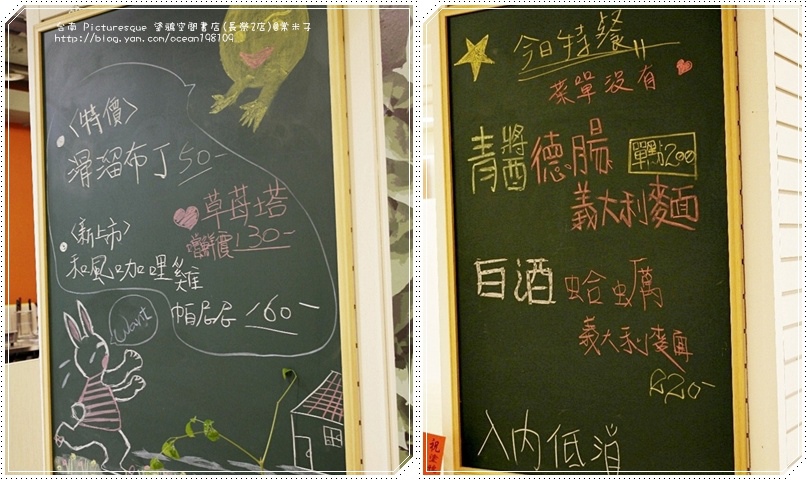 台南 Picturesque 筌鵝空間書店(長榮2店)@紫米子
http://blog.yam.com/ocean198109
<特價>
滑溜布丁 50-
草莓塔
嚐鮮價 130-
<新上市>
和風咖哩雞
帕尼尼 160-
Want
今日特餐
菜單沒有
青醬德腸
單點200
義大利麵
白酒 蛤蠣
義大利麵
220-
入內低消